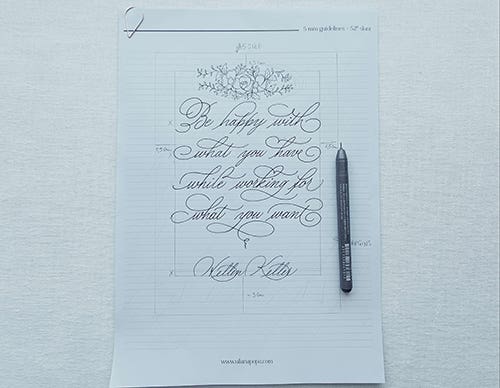 5 mm guidelines - 52° slant
Be happy with
what you have
while working for
what you want
Hellen Keller
www.ulianapopa.com